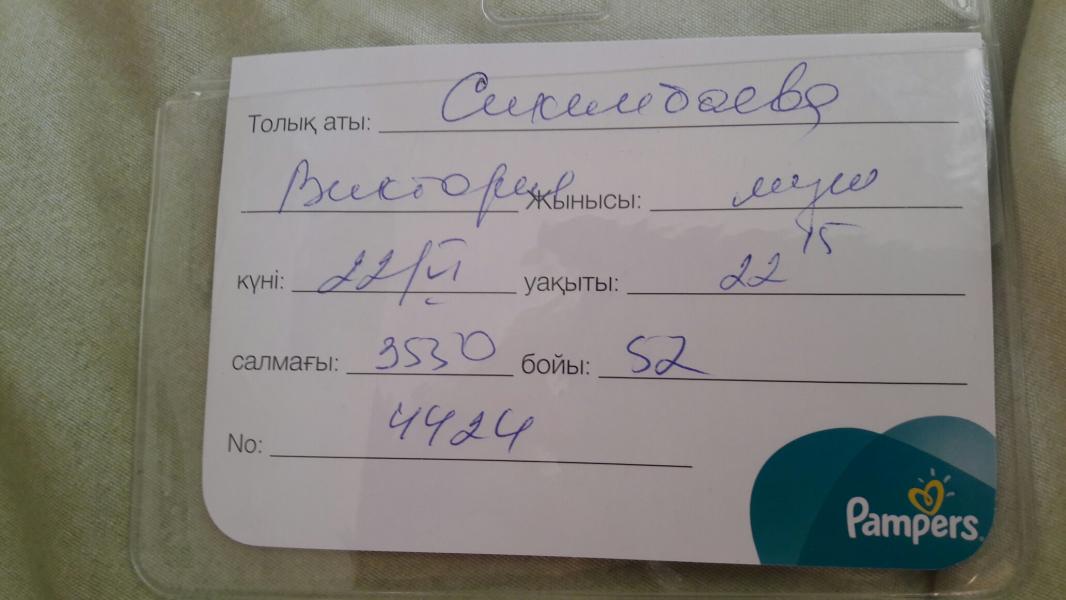 Толық аты: Сихимбаева
Виктория Жынысы: муж
күні: 22/VI уақыты: 22 15
салмағы: 3530 бойы: 52
No: 4424
Pampers